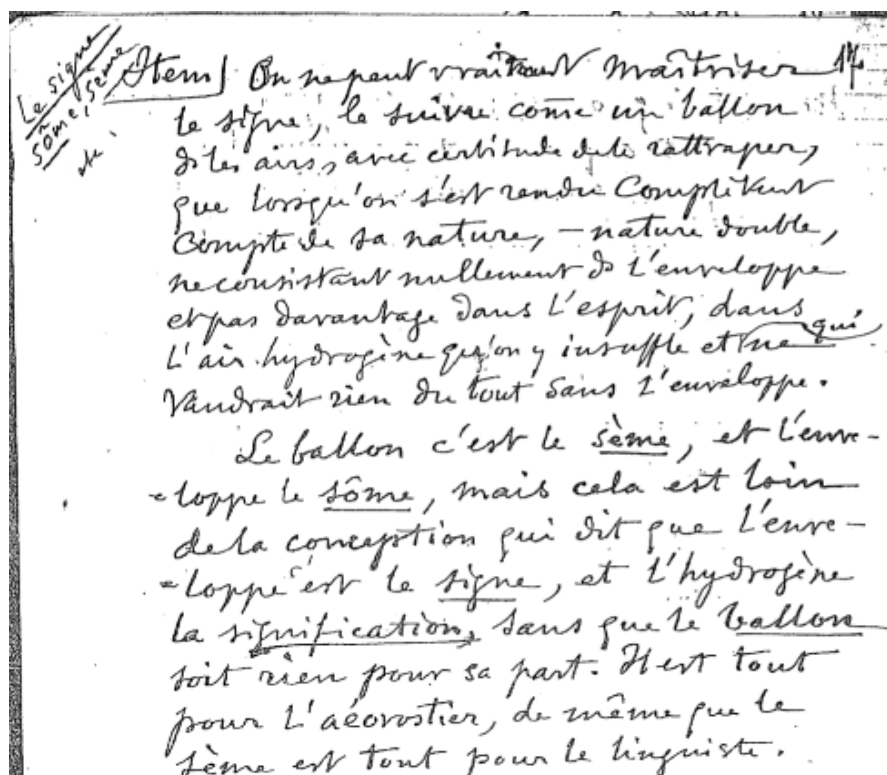 Le signe
sôme, sème
etc.
Item] On ne peut vraiment maîtriser
le signe, le suivre come un ballon
ds les airs, avec certitude de le rattraper,
que lorsqu'on s'est rendu complètent
compte de sa nature, – nature double,
ne consistant nullement ds l'enveloppe
et pas davantage dans l'esprit, dans
l'air hydrogène qu'on y insuffle et qui ne
vaudrait rien du tout sans l'enveloppe.
Le ballon c'est le sème, et l'enve-
-loppe le sôme, mais cela est loin
de la conception qui dit que l'enve-
=loppe est le signe, et l'hydrogène
la signification, sans que le ballon
soit rien pour sa part. Il est tout
pour l'aérostier, de même que le
sème est tout pour le linguiste.